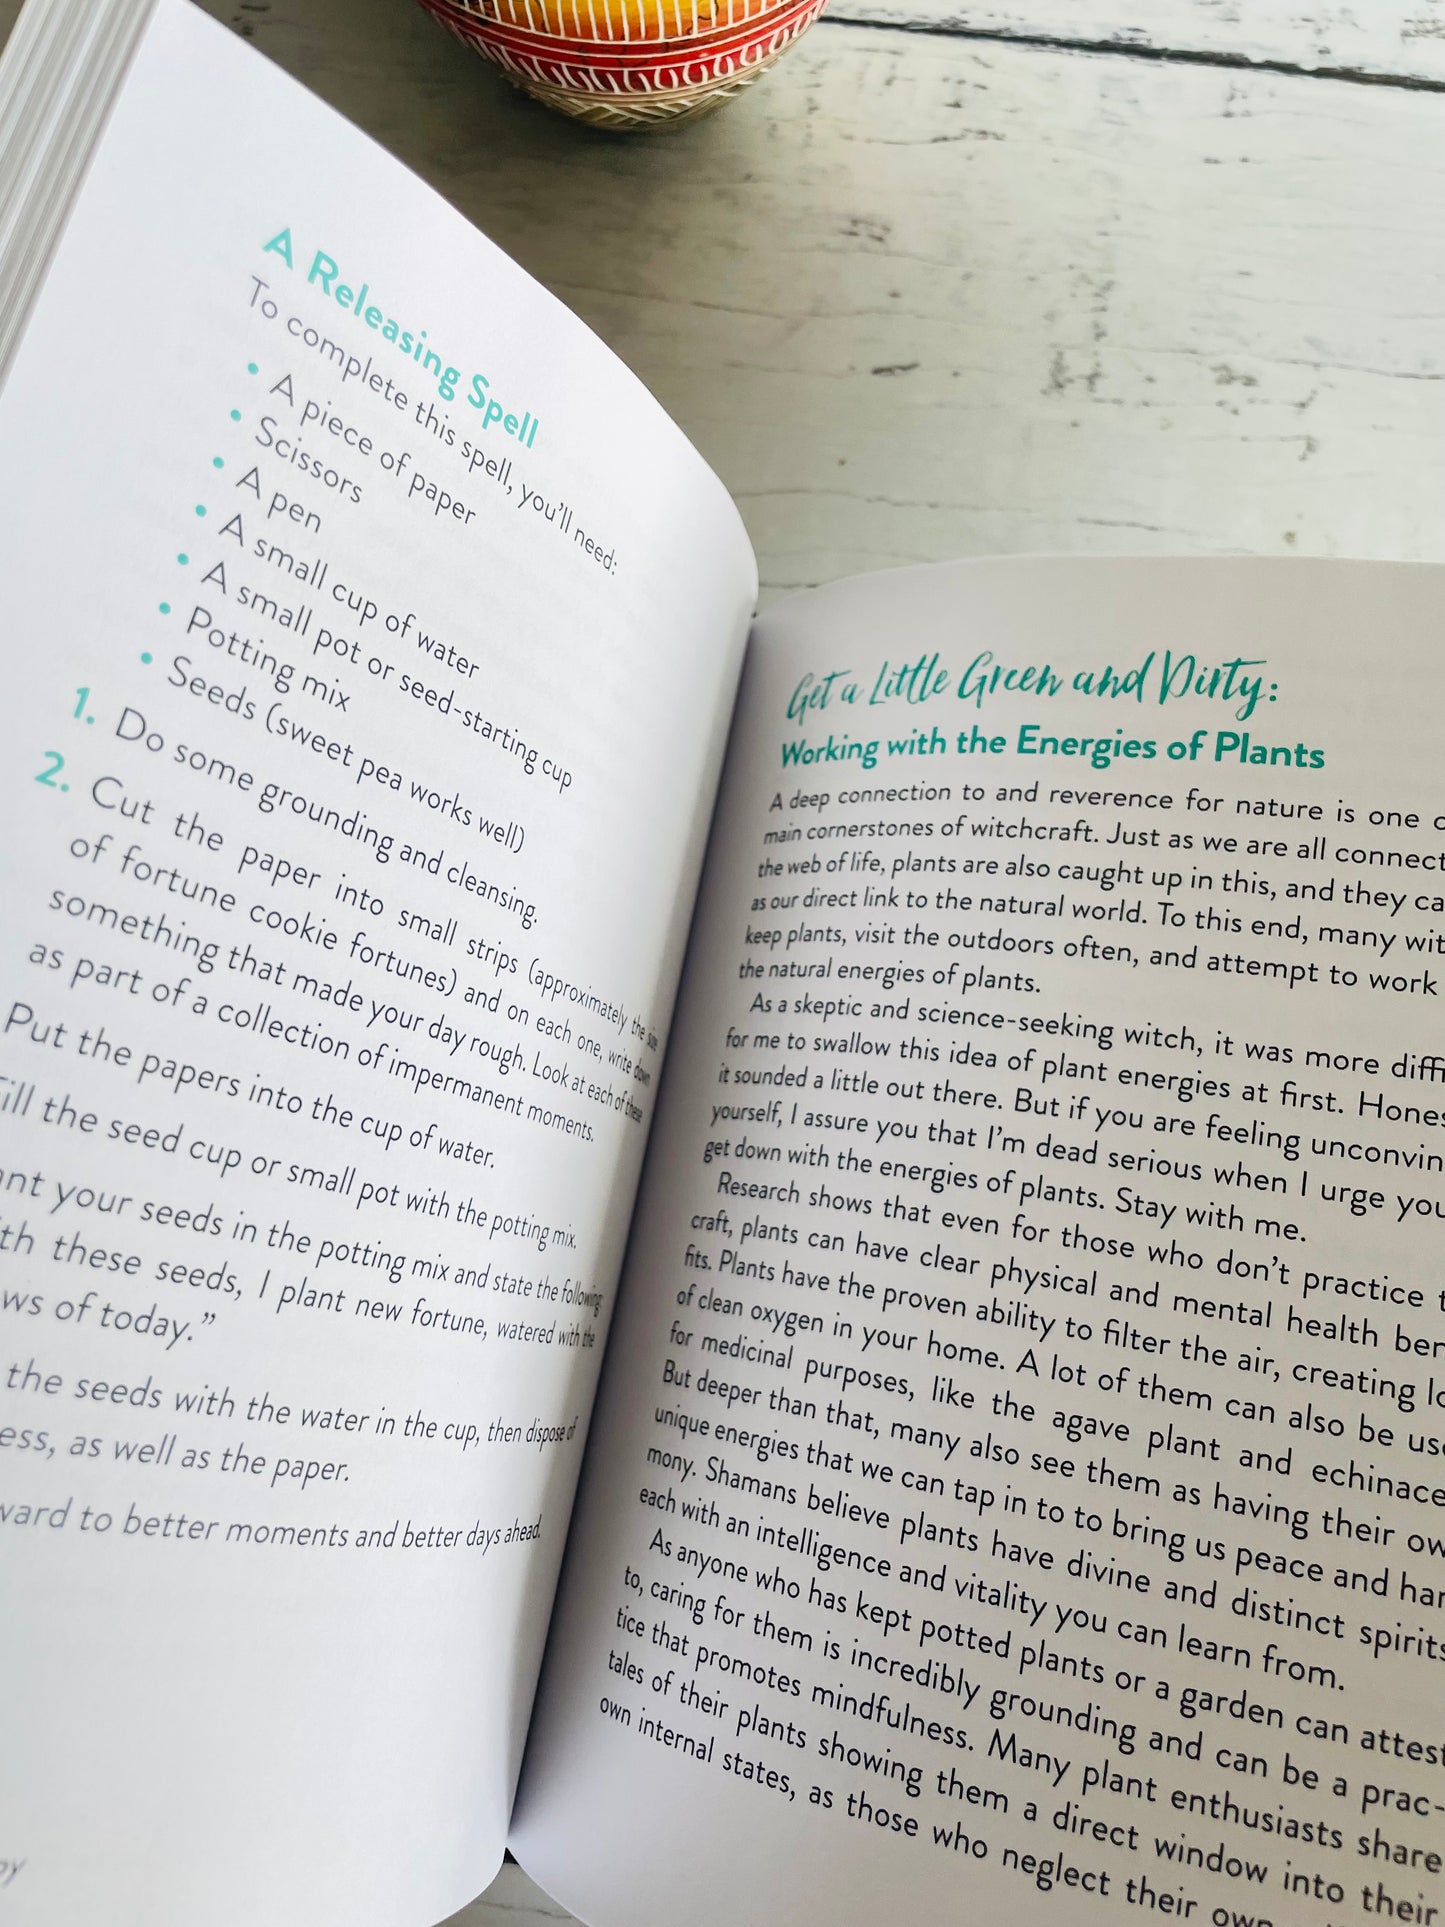 A Releasing Spell
To complete this spell, you'll need:
• A piece of paper
• Scissors
• A pen
• A small cup of water
• A small pot or seed-starting cup
• Potting mix
• Seeds (sweet pea works well)
1. Do some grounding and cleansing.
2. Cut the paper into small strips (approximately the size
of fortune cookie fortunes) and on each one, write down
something that made your day rough. Look at each of these
as part of a collection of impermanent moments.
Put the papers into the cup of water.
ill the seed cup or small pot with the potting mix.
ant your seeds in the potting mix and state the following:
ith these seeds, I plant new fortune, watered with the
ws of today."
the seeds with the water in the cup, then dispose of
ess, as well as the paper.
ward to better moments and better days ahead.
Get a Little Green and Dirty:
Working with the Energies of Plants
A deep connection to and reverence for nature is one o
main cornerstones of witchcraft. Just as we are all connect
the web of life, plants are also caught up in this, and they ca
as our direct link to the natural world. To this end, many wit
keep plants, visit the outdoors often, and attempt to work
the natural energies of plants.
As a skeptic and science-seeking witch, it was more diffi
for me to swallow this idea of plant energies at first. Hones
it sounded a little out there. But if you are feeling unconvin
yourself, I assure you that I'm dead serious when I urge you
get down with the energies of plants. Stay with me.
Research shows that even for those who don't practice t
craft, plants can have clear physical and mental health ben
fits. Plants have the proven ability to filter the air, creating lo
of clean oxygen in your home. A lot of them can also be use
for medicinal purposes, like the agave plant and echinace
But deeper than that, many also see them as having their ow
unique energies that we can tap in to to bring us peace and har
mony. Shamans believe plants have divine and distinct spirits
each with an intelligence and vitality you can learn from.
As anyone who has kept potted plants or a garden can attest
to, caring for them is incredibly grounding and can be a prac-
tice that promotes mindfulness. Many plant enthusiasts share
tales of their plants showing them a direct window into their
own internal states, as those who neglect their own